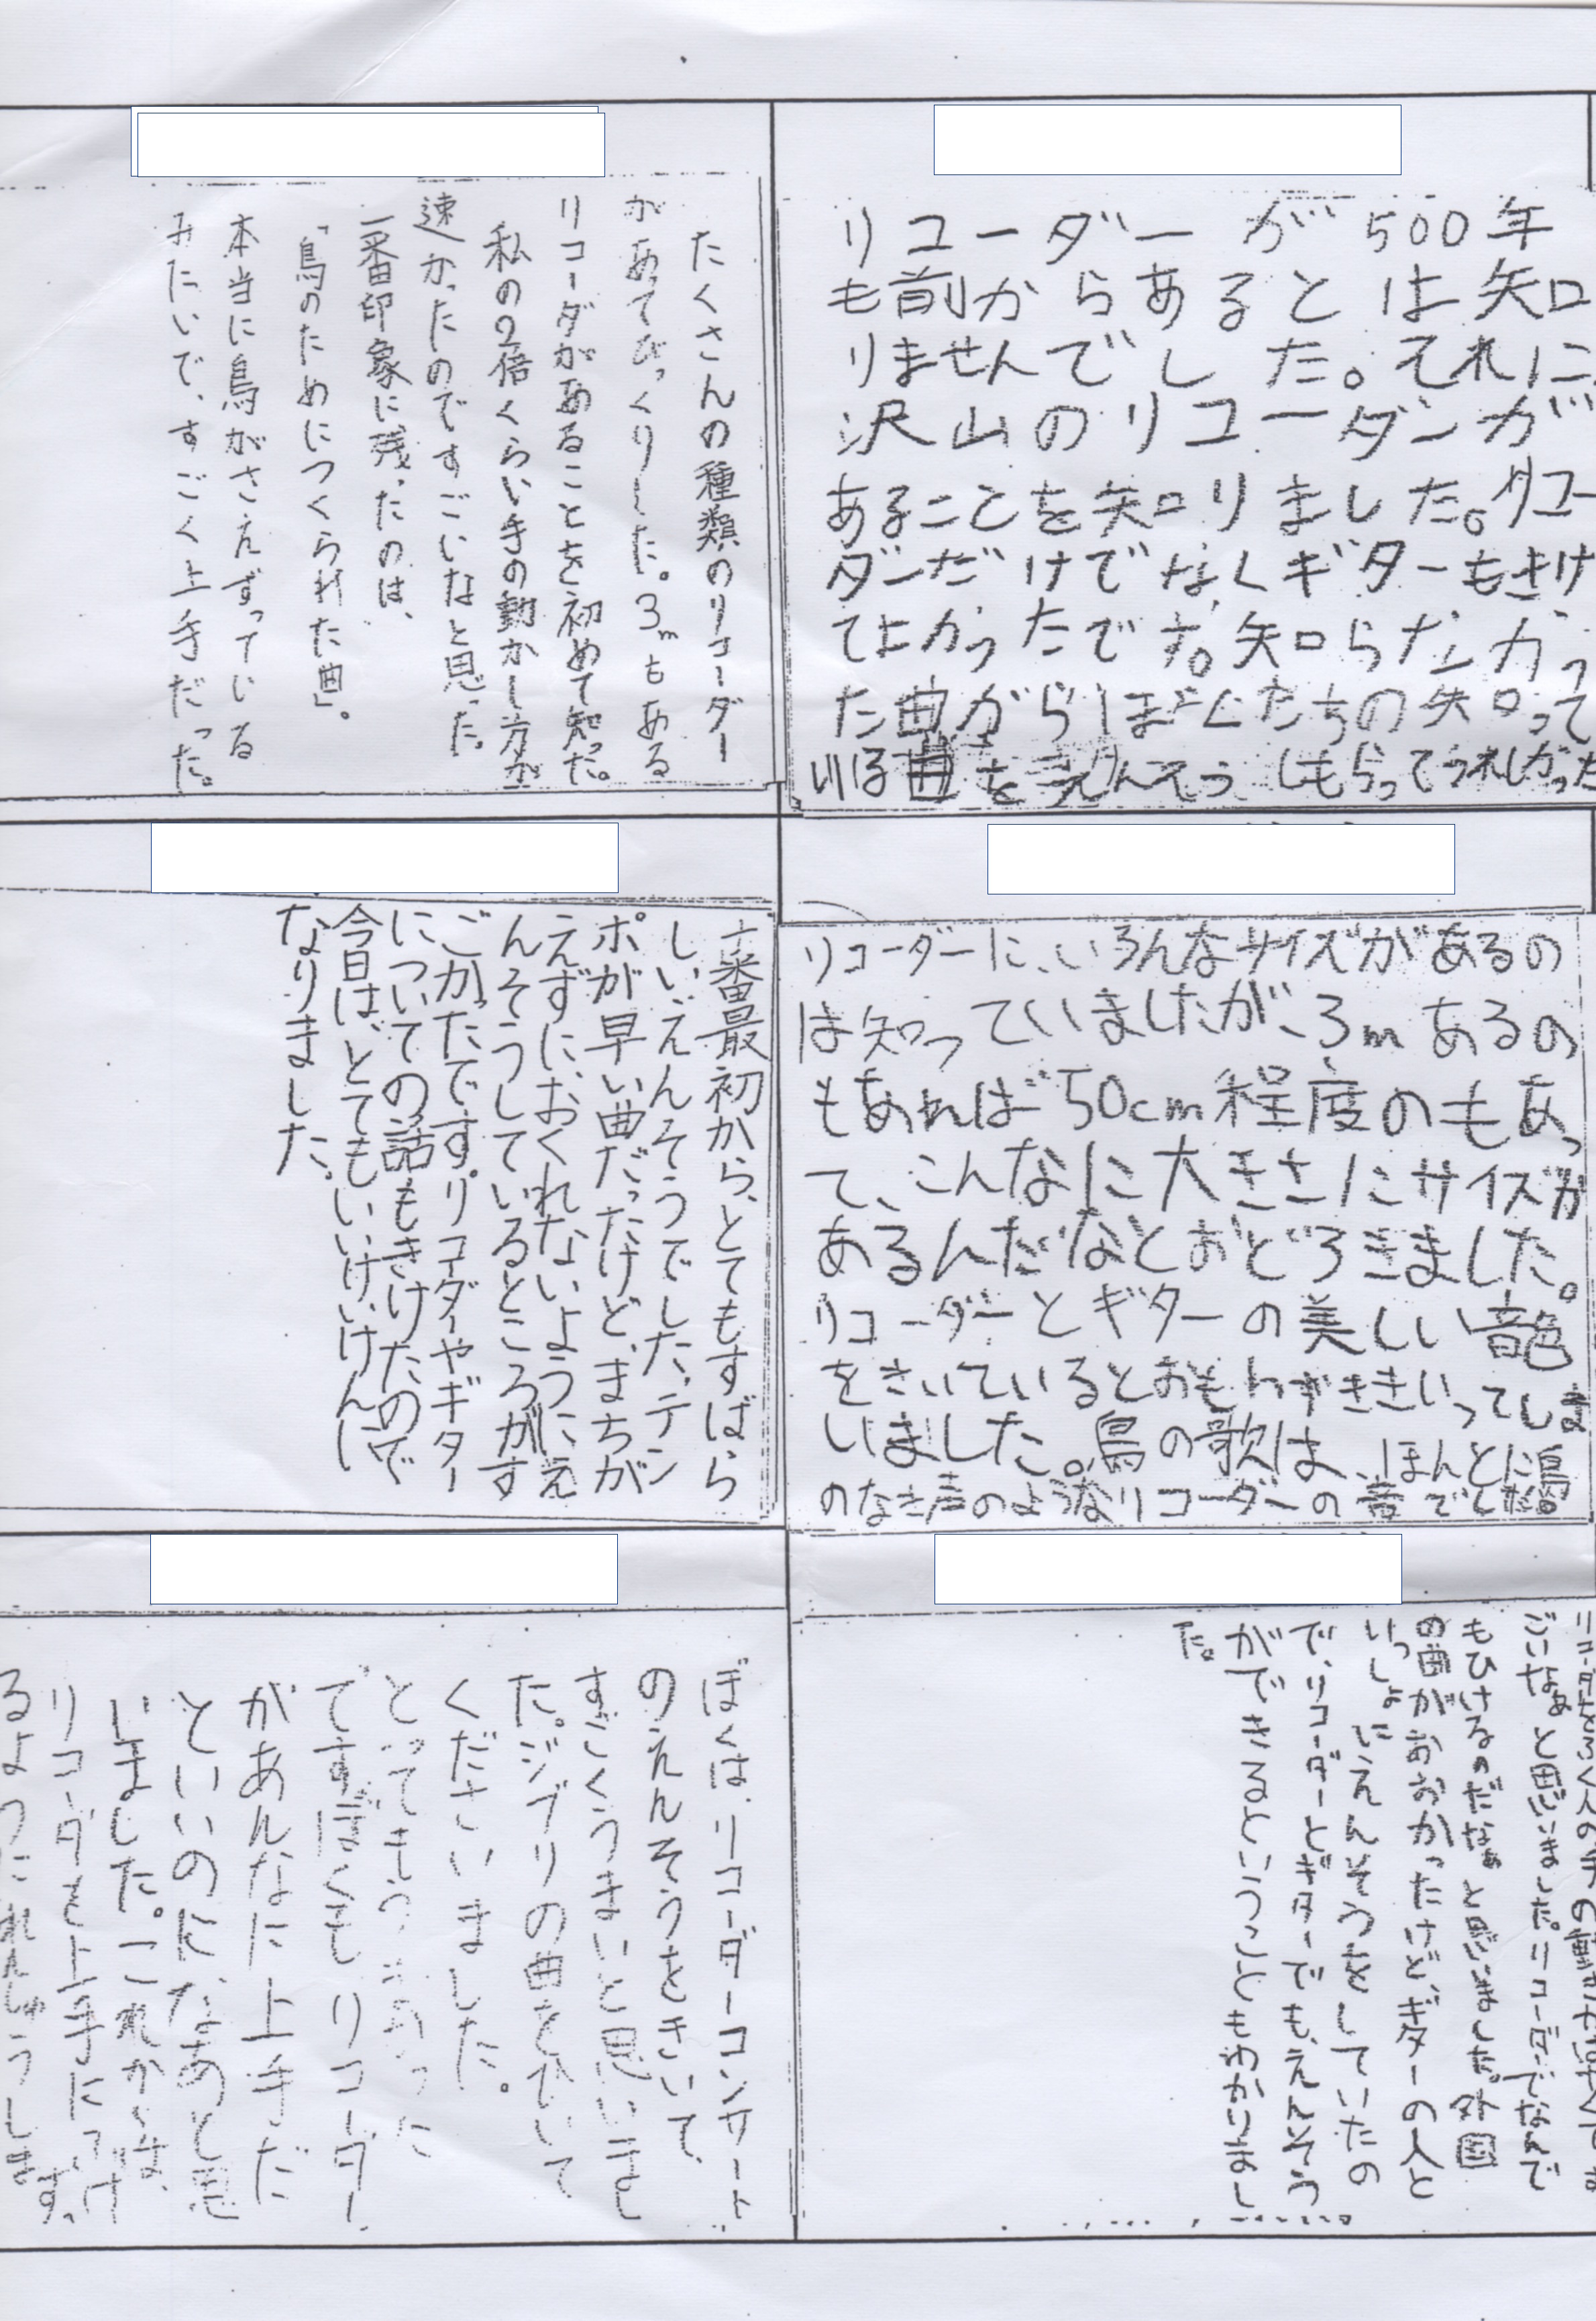 リコーダーが500年
も前からあるとは知
りませんでした。それに
沢山のリコーダーが
あることを知りました。リコー
ダーだけでなくギターもきけ
てよかったです。知らなかっ
た曲からぼくたちの知って
いる曲をえんそうしもらってうれしかった
たくさんの種類のリコーダー
があてびっくりした。3mもある
リコーダがあることを初めて知った。
私の2倍くらい手の動かし方が
速かったのですごいなと思った。
一番印象に残ったのは、
「鳥のためにつくられた曲」。
本当に鳥がさえずっている
みたいで、すごく上手だった。
リコーダーに、いろんなサイズがあるの
は知っていましたが、3mあるの
もあれば50cm程度のもあっ
て、こんなに大きさにサイズが
あるんだなとおどろきました。
リコーダーとギターの美しい音色
をきいているとおもわずききいってしま
いました。鳥の歌は、ほんとに鳥
のなき声のようなリコーダーの音でした。
一番最初から、とてもすばら
しい、えんそうでした。テン
ポが早い曲だったけど、まちが
えずに、おくれないようにえ
んそうしているところがす
ごかったです。リコーダーやギター
についての話もきけたので
今日は、とてもいいけいけんに
なりました。
ごいなぁと思いました。リコーダーでなんで
もひけるのだなぁと思いました。外国
の曲がおおかったけど、ギターの人と
いっしょにえんそうをしていたの
で、リコーダーとギターでも、えんそう
ができるということもわかりまし
た。
ぼくは、リコーダーコンサート
のえんそうをきいて、
すごくうまいと思いまし
た。ジブリの曲をひいて
くださいました。
とっても
ですぼくもリコーダー
があんなに上手だ
といいのに、なあと思
いました。これからは、
リコーダーを上手にふけ
るようにれんしゅうします。